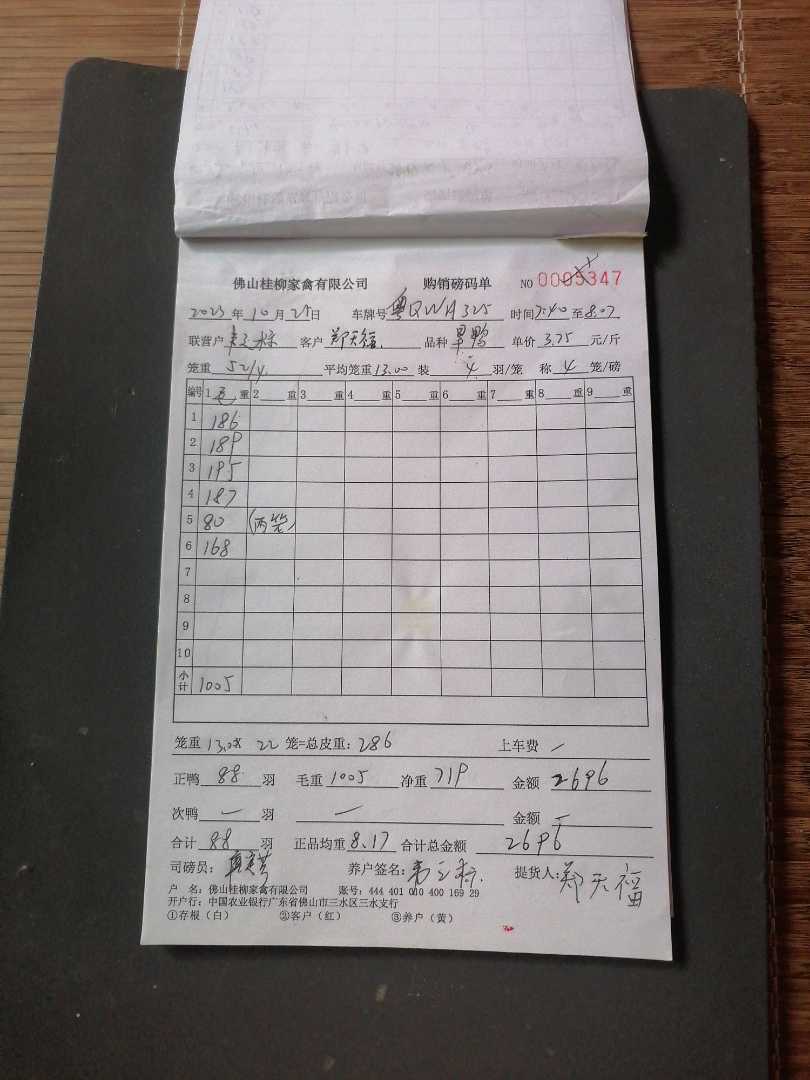 佛山桂柳家禽有限公司 购销磅码单 NO 0005347
2023年10月25日 车牌号 粤QWA325 时间7:40至8:07
联营户 客户 郑天福 品种 旱鸭 单价 3.75 元/斤
笼重 52/4 平均笼重13.00 装 4 羽/笼 称 4 笼/磅
编号 1 毛 重 2 重 3 重 4 重 5 重 6 重 7 重 8 重 9 重
1 186
2 189
3 195
4 187
5 80 (两笼)
6 168
7
8
9
10
小计 1005
笼重 13.0x 22 笼=总皮重: 286 上车费 /
正鸭 88 羽 毛重 1005 净重 719 金额 2696
次鸭 一 羽 一 金额 一
合计 88 羽 正品均重 8.17 合计总金额 2696
司磅员: 养户签名: 提货人: 郑天福
户 名: 佛山桂柳家禽有限公司 账号: 444 401 010 400 169 29
开户行: 中国农业银行广东省佛山市三水区三水支行
①存根(白) ②客户(红) ③养户(黄)